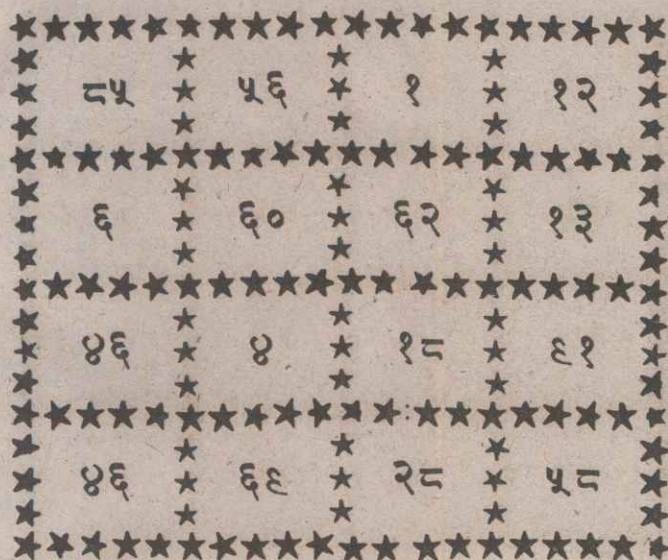 ८५ ५६ १ १२
६ ६० ६२ १३
४६ ४ १८ ९१
४६ ६९ २८ ५८